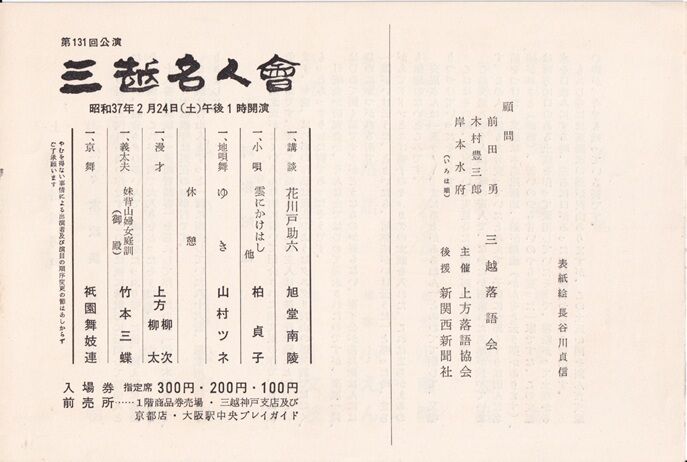 表紙絵 長谷川貞信
三越落語会
主催 上方落語協会
後援 新関西新聞社
顧問
前田勇
木村豊三郎
岸本水府
(いろは順)
第131回公演
三越名人會
昭和37年2月24日(土)午後1時開演
一、講談 花川戸助六 旭堂南陵
一、小唄 雲にかけはし 他 柏貞子
一、地唄舞 ゆき 山村ツネ
休憩
一、漫才 上方柳次 柳太
一、義太夫 妹背山婦女庭訓 (御殿) 竹本三蝶
一、京舞 祇園舞妓連
やむを得ない事情による出演者及び演目の順序変更の節はあしからず
ご了承願います
入場券 指定席 300円・200円・100円
前売所……1階商品券売場・三越神戸支店及び
京都店・大阪駅中央プレイガイド